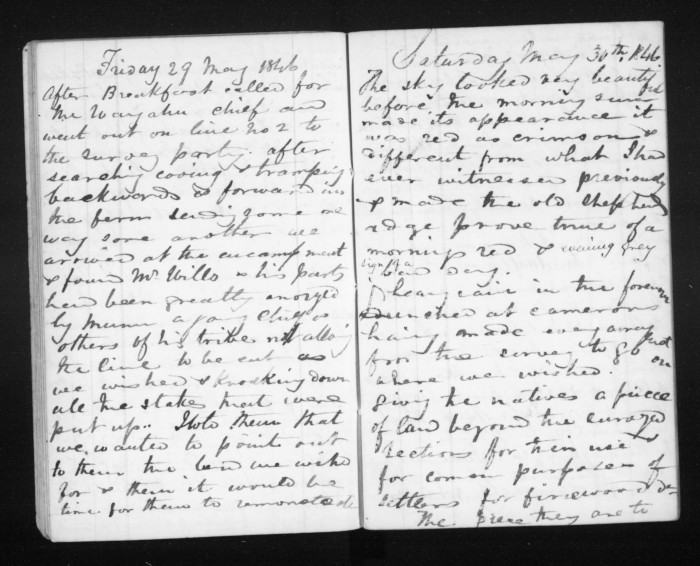 Friday 29 May 1846
After Breakfast called for
the Wayahu chief and
went out on line no 2 to
the survey party. after
searching cooving & tramping
backwords & forward in
the fern sending some one
way some another we
arrived at the encampment
& found Mr Wills & his party
had been greatly anoyed
by a young Chief &
others of his tribe not allowing
the line to be cut as
we wished & knocking down
all the stakes that were
put up.. I told them that
we wanted to point out
to them the land we wished
for & then it would be
time for them to remonstrate
Saturday May 30th, 1846.
The sky looked very beautiful
before the morning sun
made its appearance it
was red as crimson &
different from what I had
ever witnessed previously
& made the old shepherds
adge prove true of a
morning red & evening grey
sign of a
day.
heavy rain in the forenoon
lunched at camerons
having made every arrangement
for the survey to go on
where we wished.
giving the natives a piece
of land beyond the surveyed
sections for their use &
for comon purposes of
settlers for firewood &c
The piece they are to